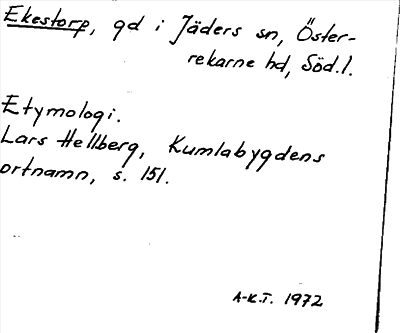 Ekestorp, gd i Jäders sn, Öster-
rekarne hd, Söd.l.
Etymologi.
Lars Hellberg, Kumlabygdens
ortnamn, s. 151.
A-K.T. 1972